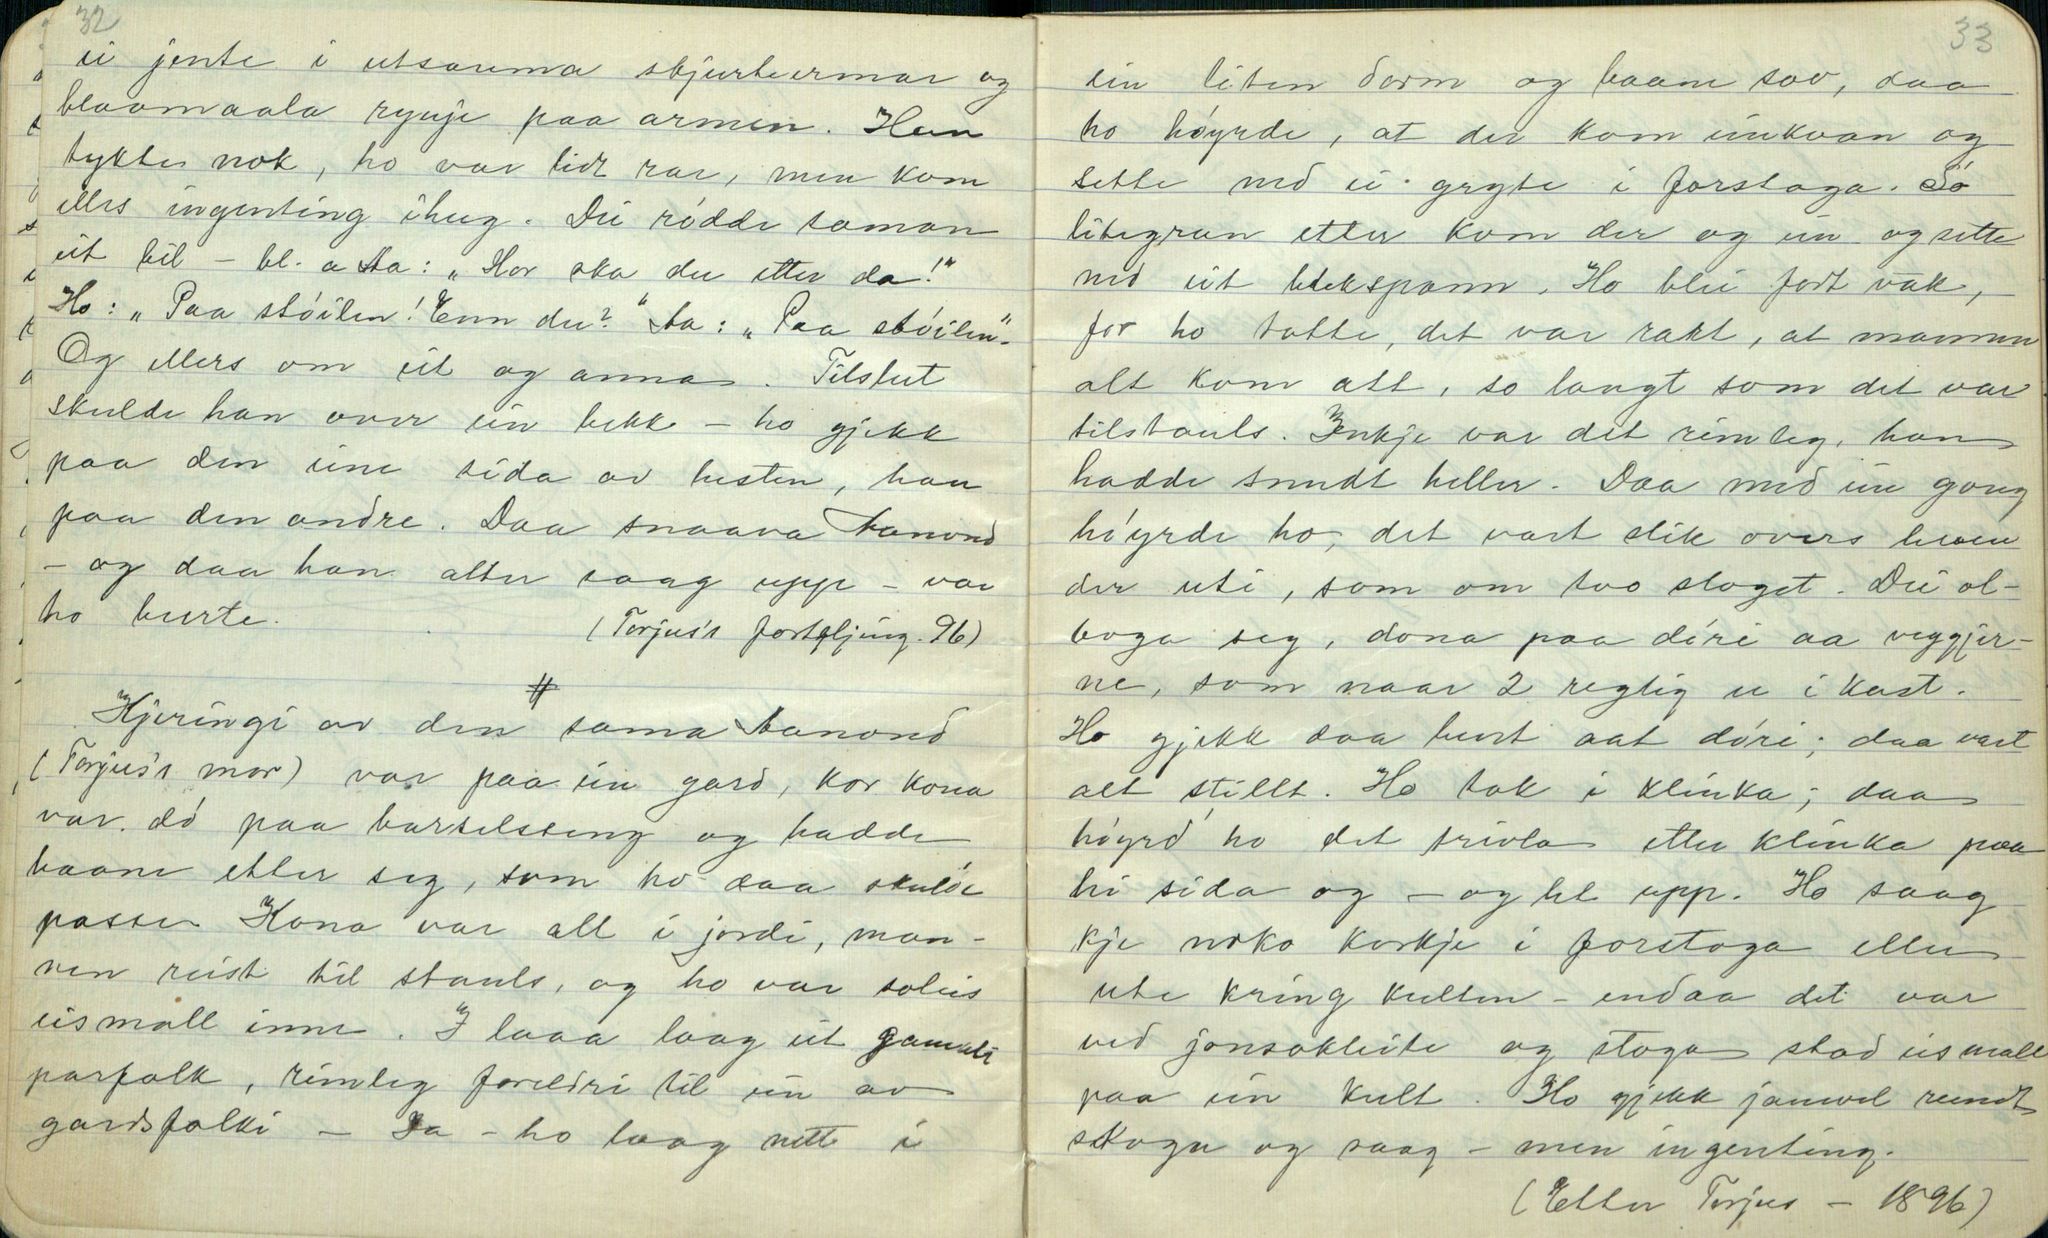 32
ei jente i utsauma skjurteermar og
blaamaala ryuje paa armen. Han
tykte nok, ho var lidt rar, men kom
elles ingenting ihug. Dei rødde saman
eit bil – bl. a Aa: „Hor ska du etter da!"
Ho: „Paa støilen! Enn du?" Aa: „Paa støilen".
Og ellers om eit og anna. Tilslut
skulde han over ein bekk – ho gjekk
paa den eine sida av hesten, han
paa den andre. Daa snaava Aanond
– og daa han atter saag upp – var
ho burte.
(Torjus's forteljing. 96)
#
Kjeringi av den sama Aanond
(Torjus's mor) var paa ein gard, kor kona
var dø paa barselseng og hadde
baane etter seg, som ho daa skulde
passe. Kona var alt i jordi, man-
nen reist til stauls, og ho var soleis
eismall inne. I laaa laag eit gamalt
parfolk, rimleg foreldri til ein av
gardsfolki – Ja – ho laag nett i
33
ein liten dorm og baane sov, daa
ho høyrde, at der kom einkvan og
sette ned ei gryte i forstoga. So
litegran etter kom der og ein og sette
ned eit blekspann. Ho blei fort vak,
for ho totte, det var rakt, at mannen
alt kom att, so langt som det var
tilstauls. Inkje var det rimleg, han
hadde snudt heller. Daa med ein gong
høyrde ho, det vart slik overs leven
der uti, som om tvo sloget. Dei ol-
boga seg, dona paa døri aa veggjer-
ne, som naar 2 regtig er i kast.
Ho gjekk daa burt aat døri; daa vart
alt stillt. Ho tok i klinka; daa
høyrd' ho det trivla etter klinka paa
hi sida og – og let upp. Ho saag
kje noko korkje i forstoga eller
ute kring kulten – endaa det var
ved jonsokleite og stoga stod eismall
paa ein kult. Ho gjekk jamvel rundt
stoga og saag – men ingenting.
(Etter Torjus – 1896)